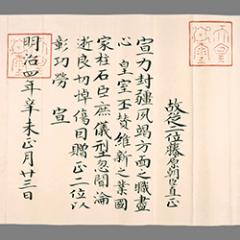 故從二位藤原朝臣直正
宣力封疆夙竭方面之職盡
心 皇室丕贊維新之業国
家柱石臣庶儀型忽聞淪
逝良切悼傷因贈正二位以
彰功勞 宣
明治四年辛未正月廿三日